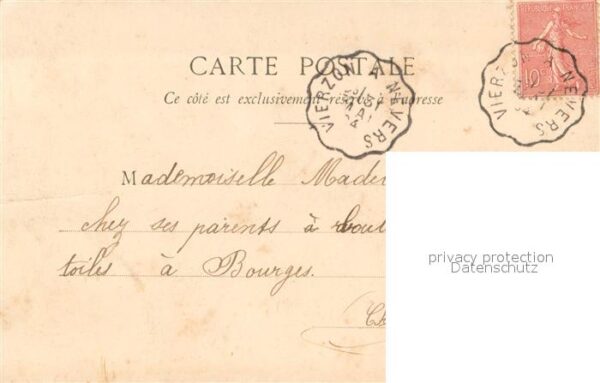 CARTE POSTALE
Ce côté est exclusivement réservé à l'adresse
REPUBLIQUE FRANÇAISE
10
VIERZON A NEVERS
31
MAI
04
VIERZON A NEVERS
Mademoiselle Madel
chez ses parents à
toiles à Bourges.
privacy protection
Datenschutz